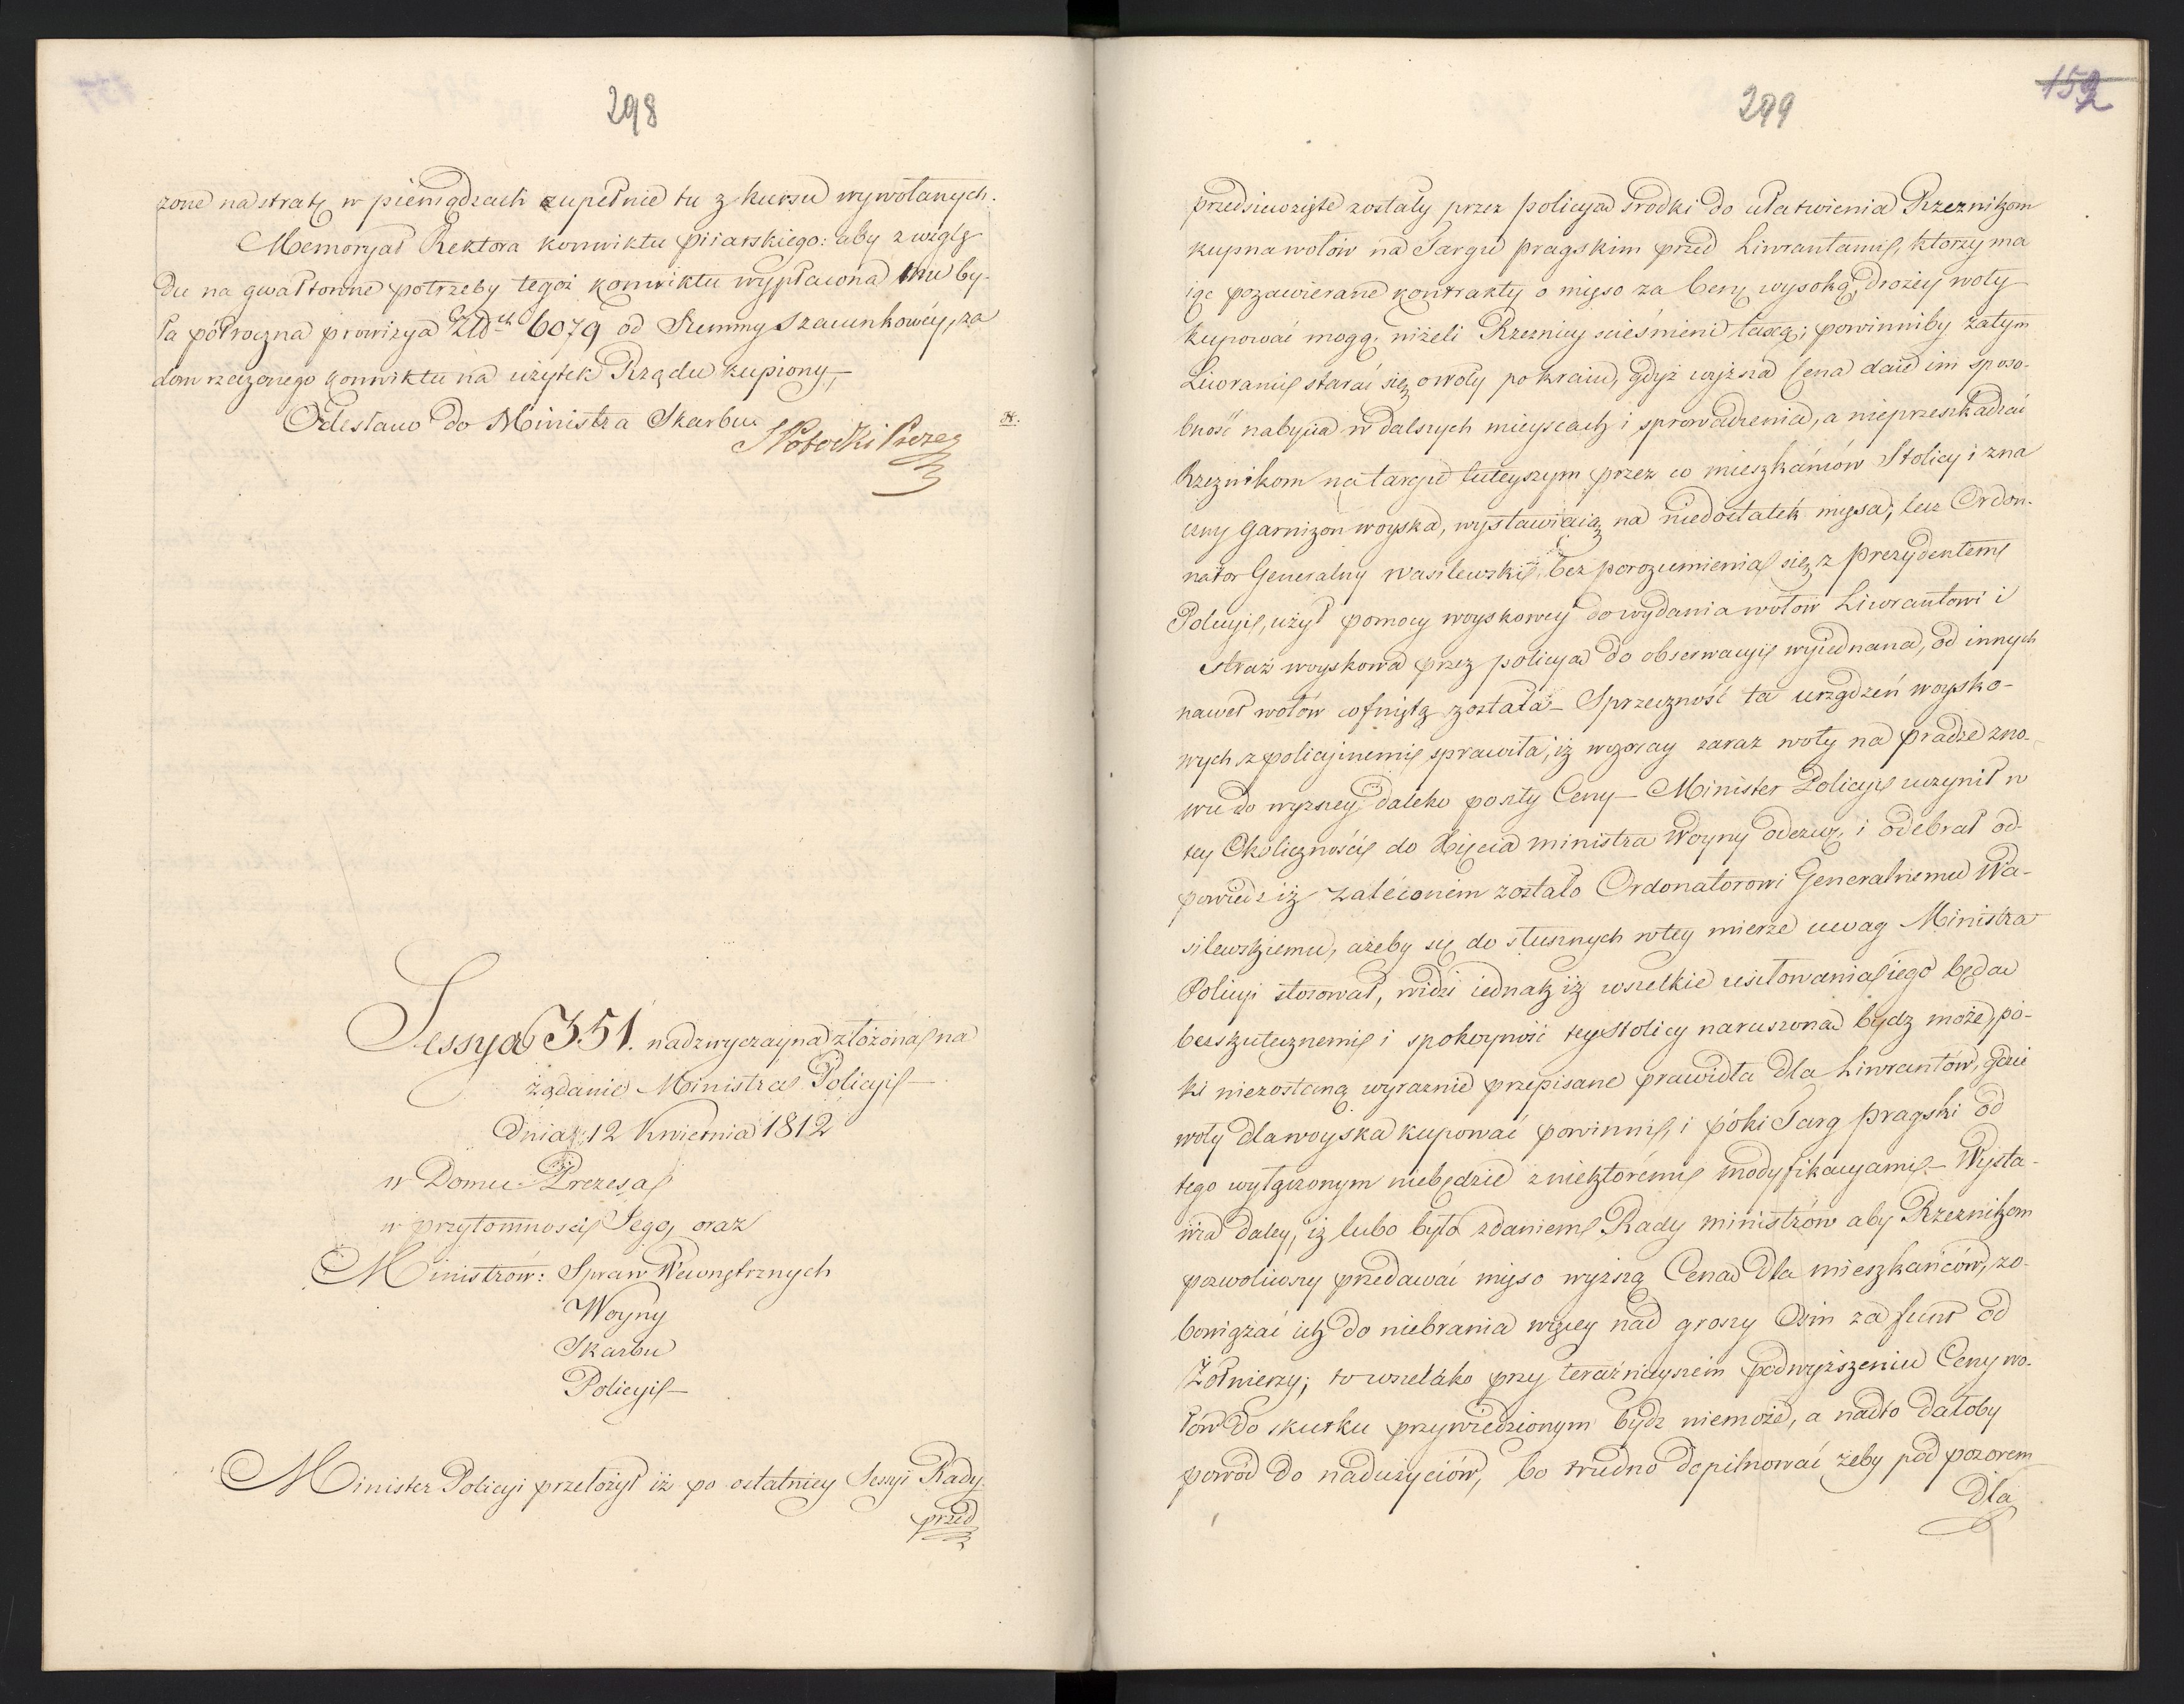 298
zone na stratę w pieniądzach zupełnie tu z kursu wywołanych.
Memoryał Rektora konwiktu piiarskiego: aby z wzglę-
du na gwałtowne potrzeby tegoż konwiktu wypłacona mu by-
ła półroczna prowizya Złłch 6079 od Summy szacunkowéy, za
dom rzeczonego konwiktu na użytek Rządu kupiony,—
Odesłano do Ministra Skarbu.
SPotocki Prezes
N.
Sessya 351. nadzwyczayna złożona na
żądanie Ministra Policyi—
Dnia 12 Kwietnia 1812
w Domu Prezesa
w przytomności Jego, oraz
Ministrów: Spraw Wewnętrznych
Woyny
Skarbu
Policyi—
Minister Policyi przełożył iż po ostatniey Sessyi Rady.
przed
299
152
przedsiewzięte zostały przez policyą srodki do ułatwienia Rzeznikom
kupna wołów na Targu pragskim przed Liwrantami, ktorzy ma
iąc pozawierane kontrakty o mięso za Cenę wysoką, drożey woły
kupować mogą, niżeli Rzeznicy scieśnieni taxą; powinniby zatym
Liwranci starać się o woły po kraiu, gdyż wyższa Cena daie im sposo-
bność nabycia w dalszych mieyscach i sprowadzenia, a nieprzeszkadzać
Rzeznikom na targu tuteyszym przez co mieszkańców Stolicy i zna
czny garnizon woyska, wystawiaią na niedostatek mięsa, lecz Ordon-
nator Generalny Wasilewski, bez porozumienia się z Prezydentem
Policyi, użył pomocy woyskowey do wydania wołów Liwrantowi i
straż woyskowa przez policyą do obserwacyi wyiednana, od innych
nawet wołów cofniętą została— Sprzeczność ta urządzeń woysko-
wych z policyinemi sprawiła, iż wczoray zaraz woły na pradze zno-
wu do wyzszey daleko poszły Ceny— Minister Policyi uczynił w
tey Okoliczności do Xięcia ministra Woyny odezwę, i odebrał od-
powiedz iż zaleconem zostało Ordonatorowi Generalnemu Wa-
silewskiemu, ażeby się do słusznych w tey mierze uwag Ministra
Policyi stosował, widzi iednak iż wszelkie usiłowania iego będą
bezskutecznemi i spokoyność tey Stolicy naruszona bydz może, pó-
ki niezostaną wyraznie przepisane prawidła dla Liwrantów, gdzie
woły dla woyska kupować powinni, i póki Targ pragski od
tego wyłączonym niebędzie z niektóremi modyfikacyami— Wysta-
wia daley, iż lubo było zdaniem Rady ministrów aby Rzeznikom
pozwoliwszy przedawać mięso wyższą Ceną dla mieszkańców, zo-
bowiązać ich do niebrania więcey nad groszy Osm za funt od
Żołnierzy; to wszelako przy teraznieyszem podwyższeniu Ceny wo-
łów do skutku przywiedzionym bydz niemoże, a nadto dałoby
powód do nadużyciów, bo trudno dopilnować żeby pod pozorem
dla